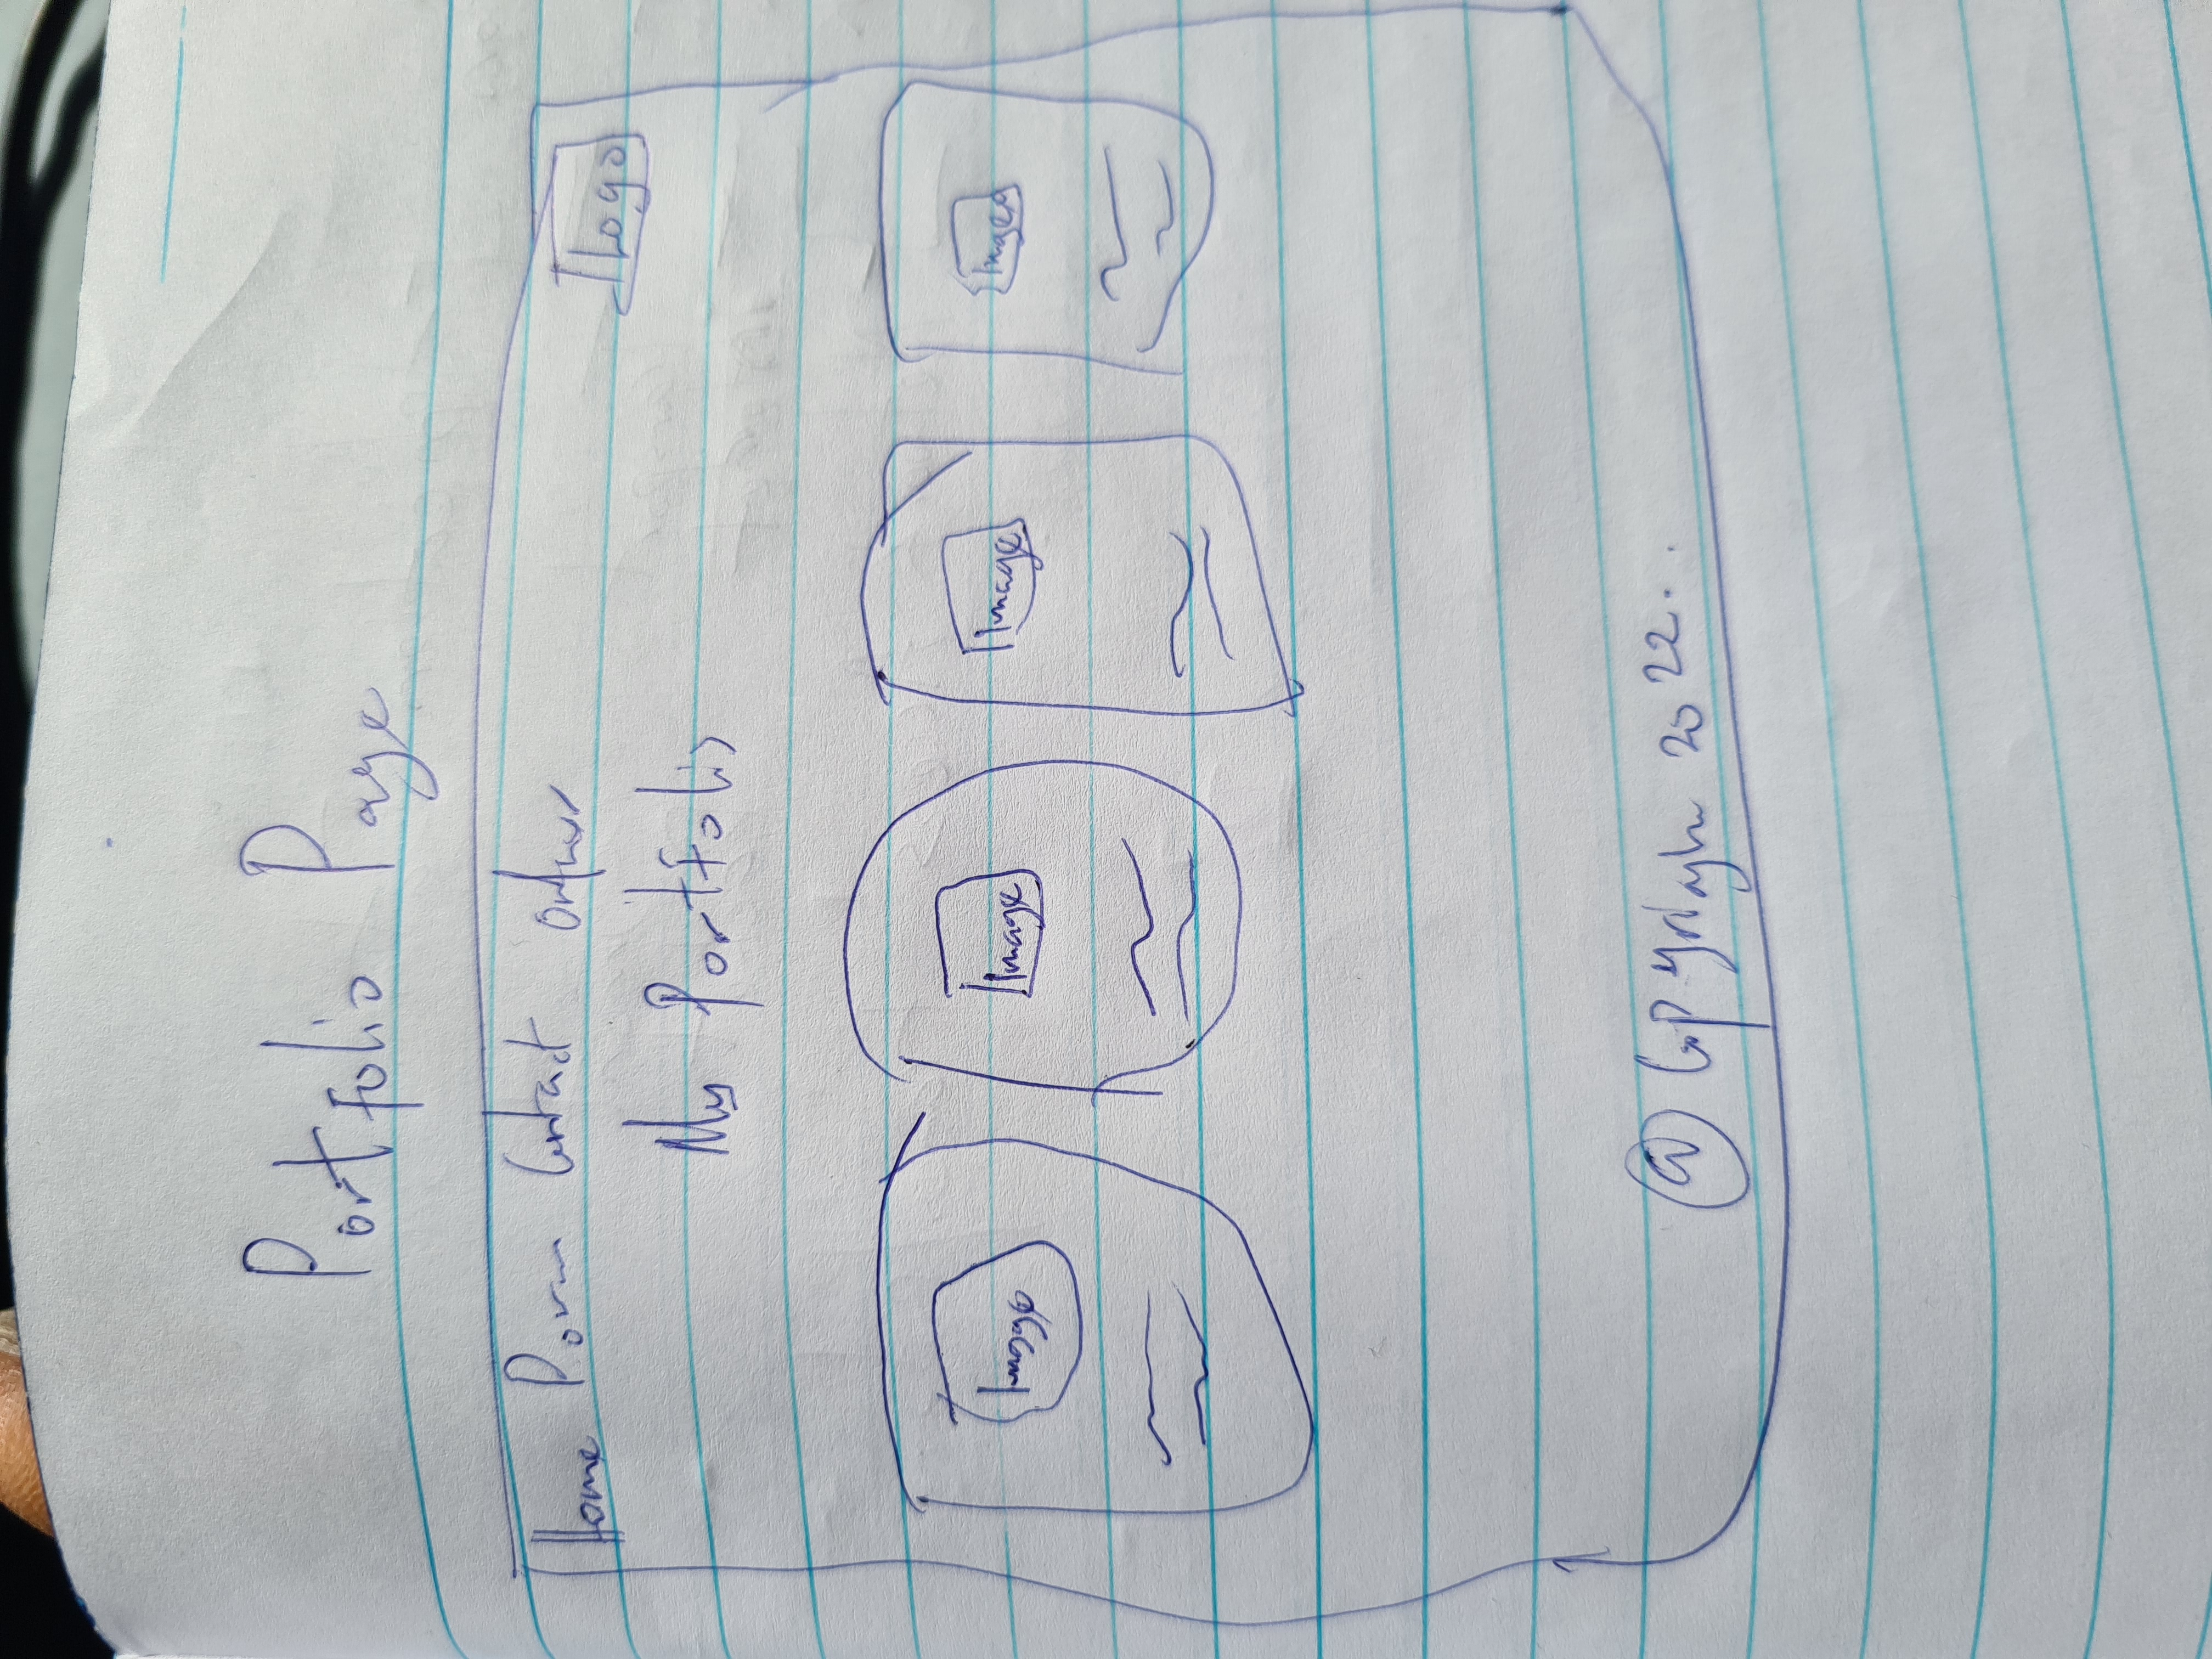 Portfolio Page
Home Contact Logo
My Portfolio
Image Image Image Image
@ Copyright 2022..